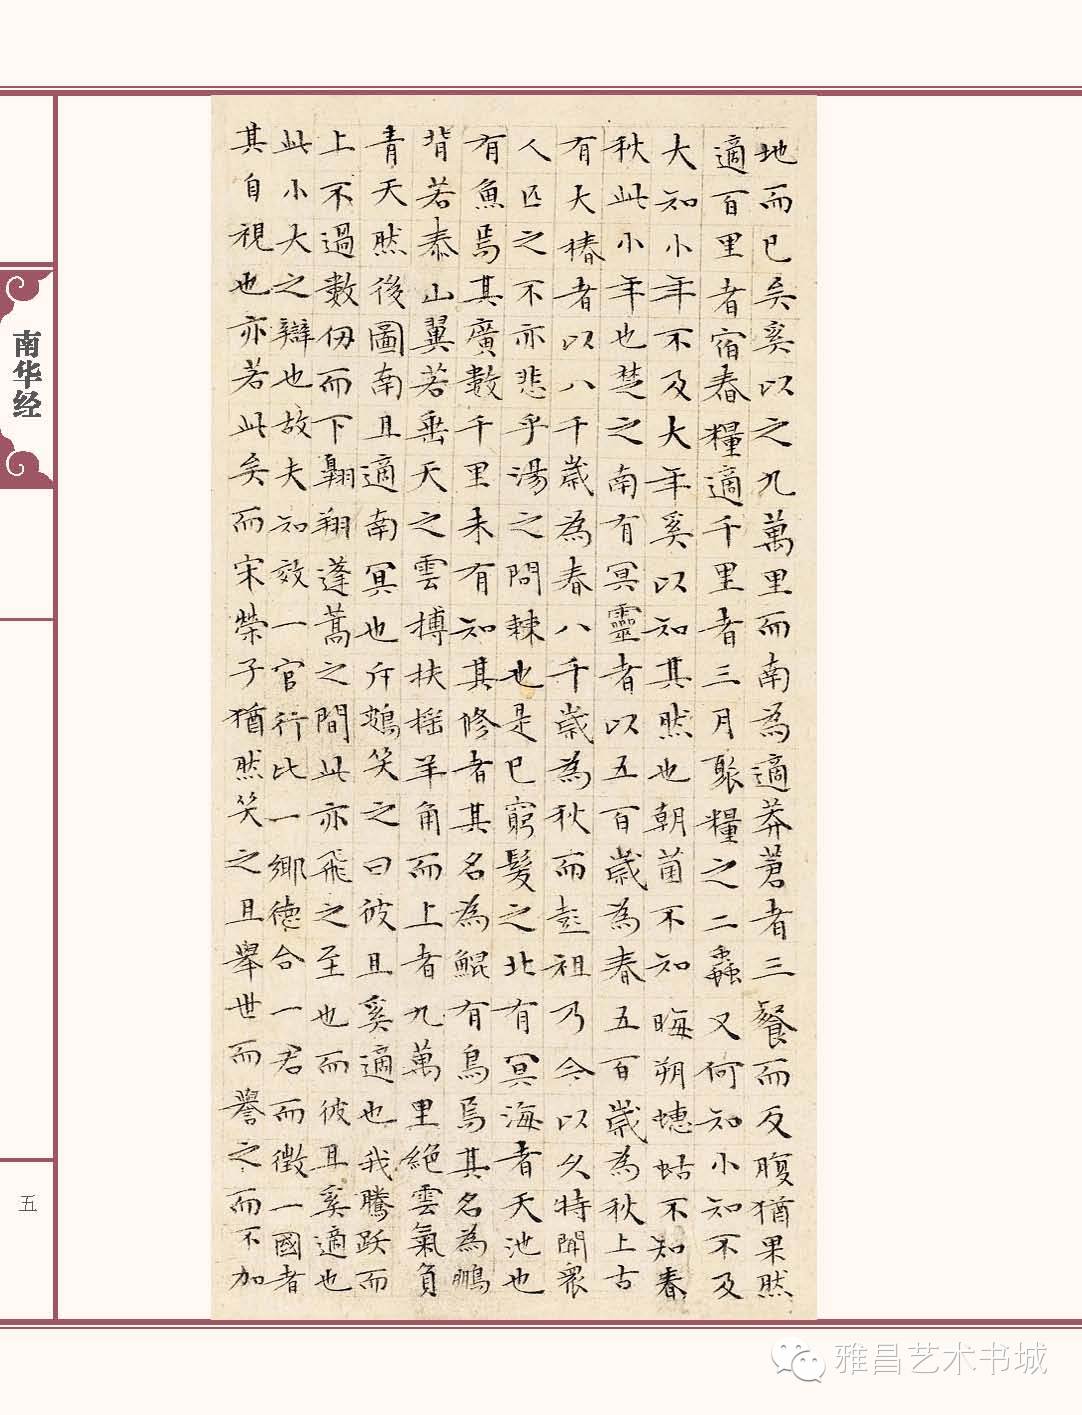 地而已矣奚以之九萬里而南為適莽蒼者三餐而反腹猶果然
適百里者宿舂糧適千里者三月聚糧之二蟲又何知小知不及
大知小年不及大年奚以知其然也朝菌不知晦朔蟪蛄不知春
秋此小年也楚之南有冥靈者以五百歲為春五百歲為秋上古
有大椿者以八千歲為春八千歲為秋而彭祖乃今以久特聞衆
人匹之不亦悲乎湯之問棘也是已窮髮之北有冥海者天池也
有魚焉其廣數千里未有知其修者其名為鯤有鳥焉其名為鵬
背若泰山翼若垂天之雲搏扶搖羊角而上者九萬里絕雲氣負
青天然後圖南且適南冥也斥鴳笑之曰彼且奚適也我騰跃而
上不過數仞而下翱翔蓬蒿之間此亦飛之至也而彼且奚適也
此小大之辯也故夫知效一官行比一鄉德合一君而徵一國者
其自視也亦若此矣而宋榮子猶然笑之且舉世而譽之而不加
南华经
五
雅昌艺术书城